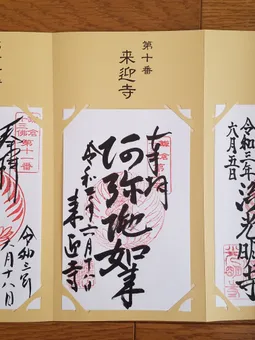 第十番
来迎寺
奉拝
阿弥陀如来
令和三年六月十八日
来迎寺
令和三年
六月五日
浄光明寺
奉拝
第十一番
令和三年
六月十八日